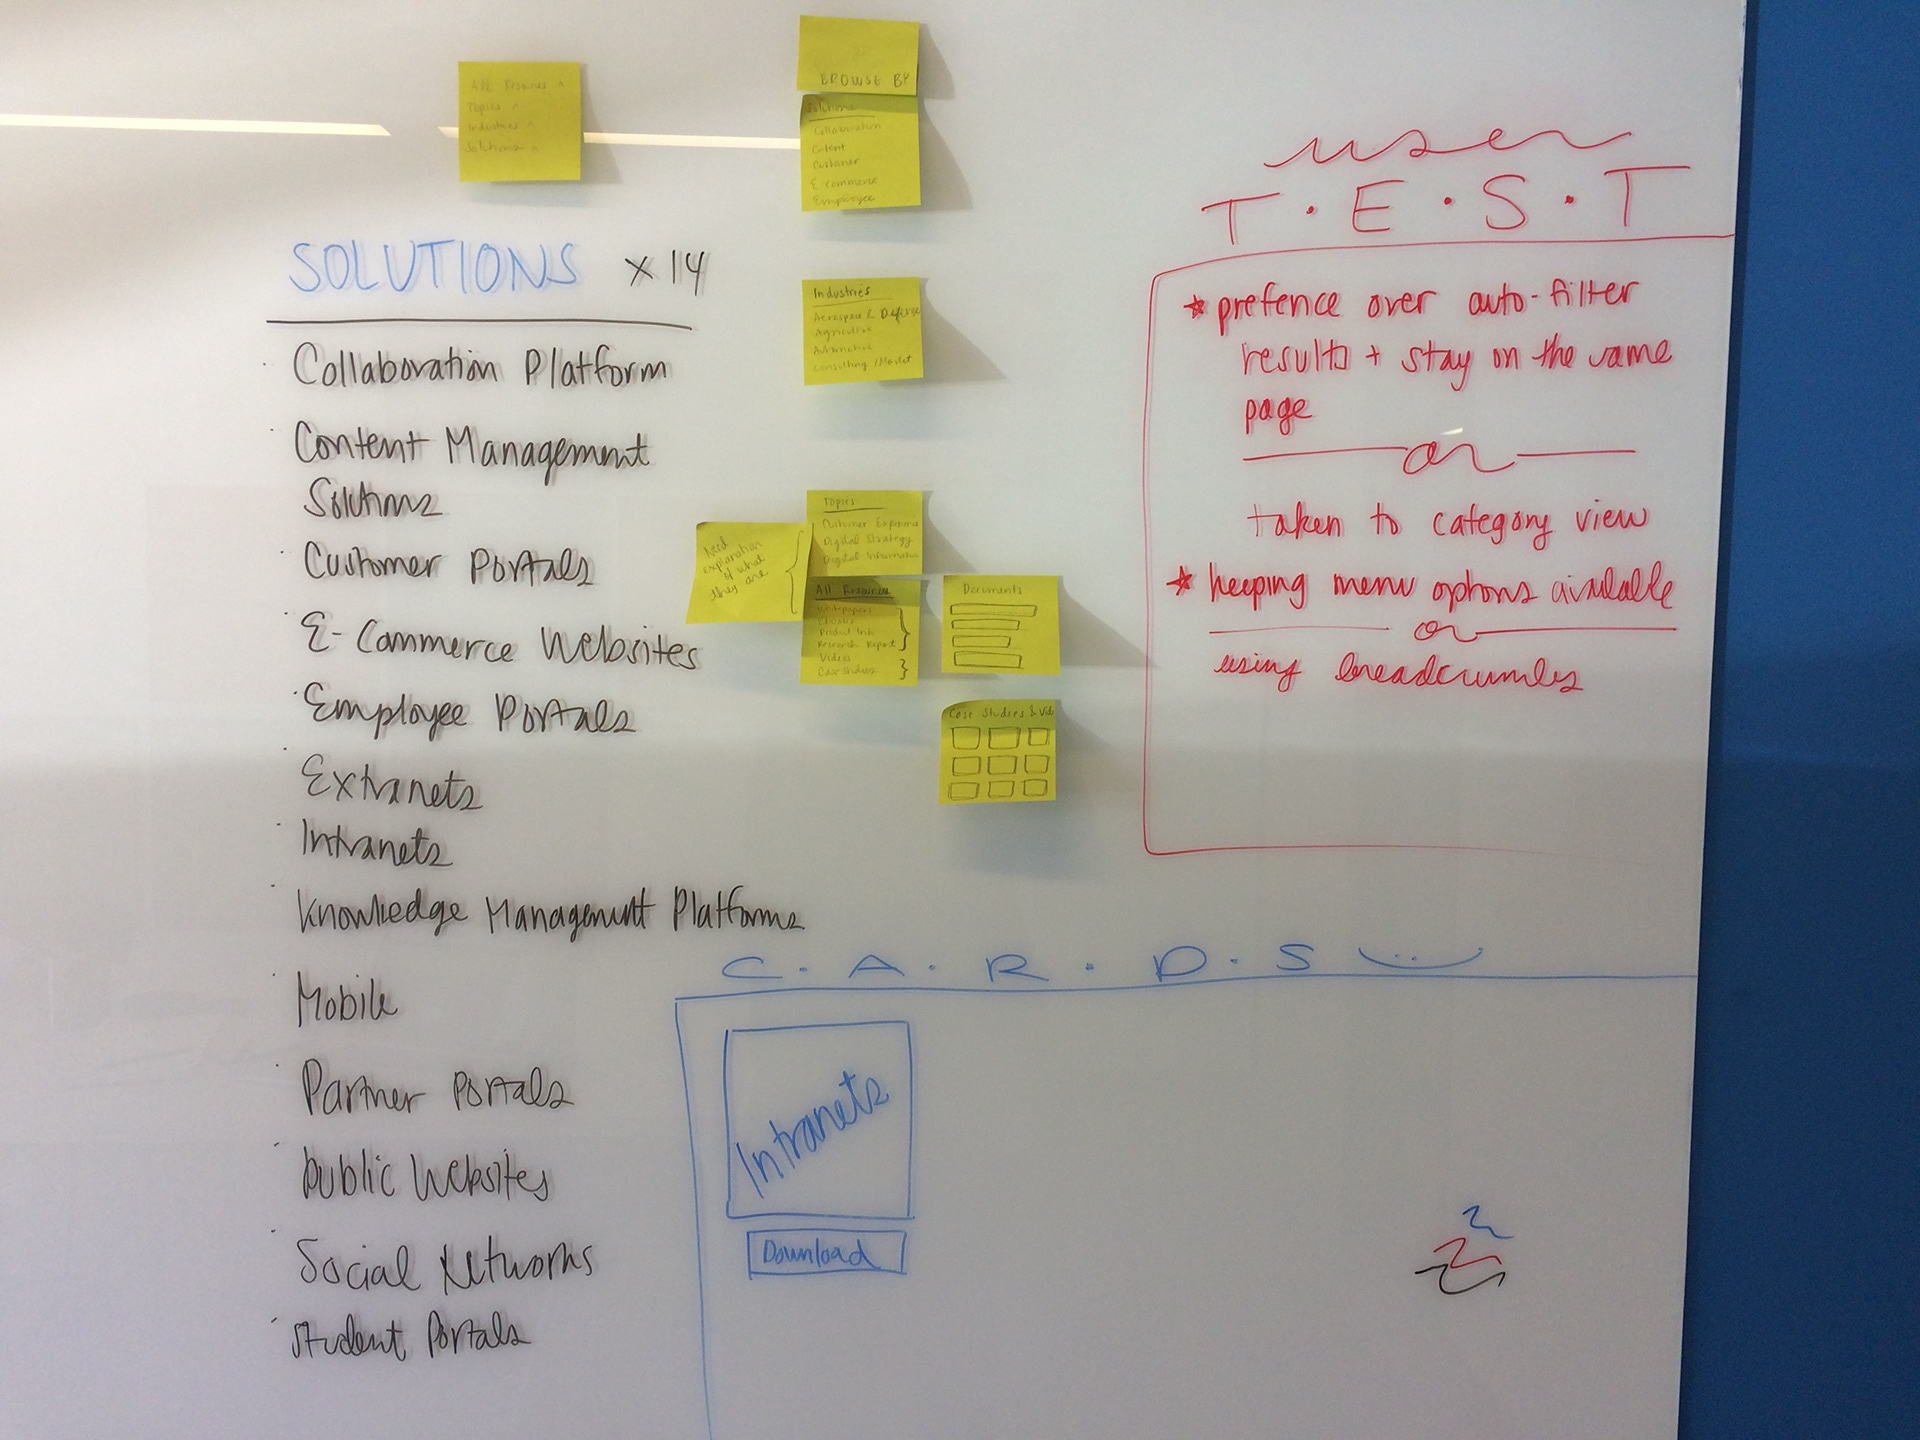 All Resources ^
Topics ^
Industries ^
Solutions ^
BROWSE BY
Solutions
Collaboration
Content
Customer
E-commerce
Employee
SOLUTIONS x 14
Collaboration Platform
Content Management
Solutions
Customer Portals
E-Commerce Websites
Employee Portals
Extranets
Intranets
Knowledge Management Platforms
Mobile
Partner Portals
Public Websites
Social Networks
Student Portals
Industries
Aerospace & Defense
Agriculture
Automotive
Consulting / Market
Need
explanation
of what
they are
Topics
Customer Experience
Digital Strategy
Digital
All Resources
Whitepapers
Product Info
Research Report
Videos
Case Studies
Documents
Case Studies & Vid
user
T.E.S.T
* prefence over auto-filter
results + stay on the same
page
or
taken to category view
* keeping menu options available
or
using breadcrumbs
C.A.R.D.S
Intranets
Download